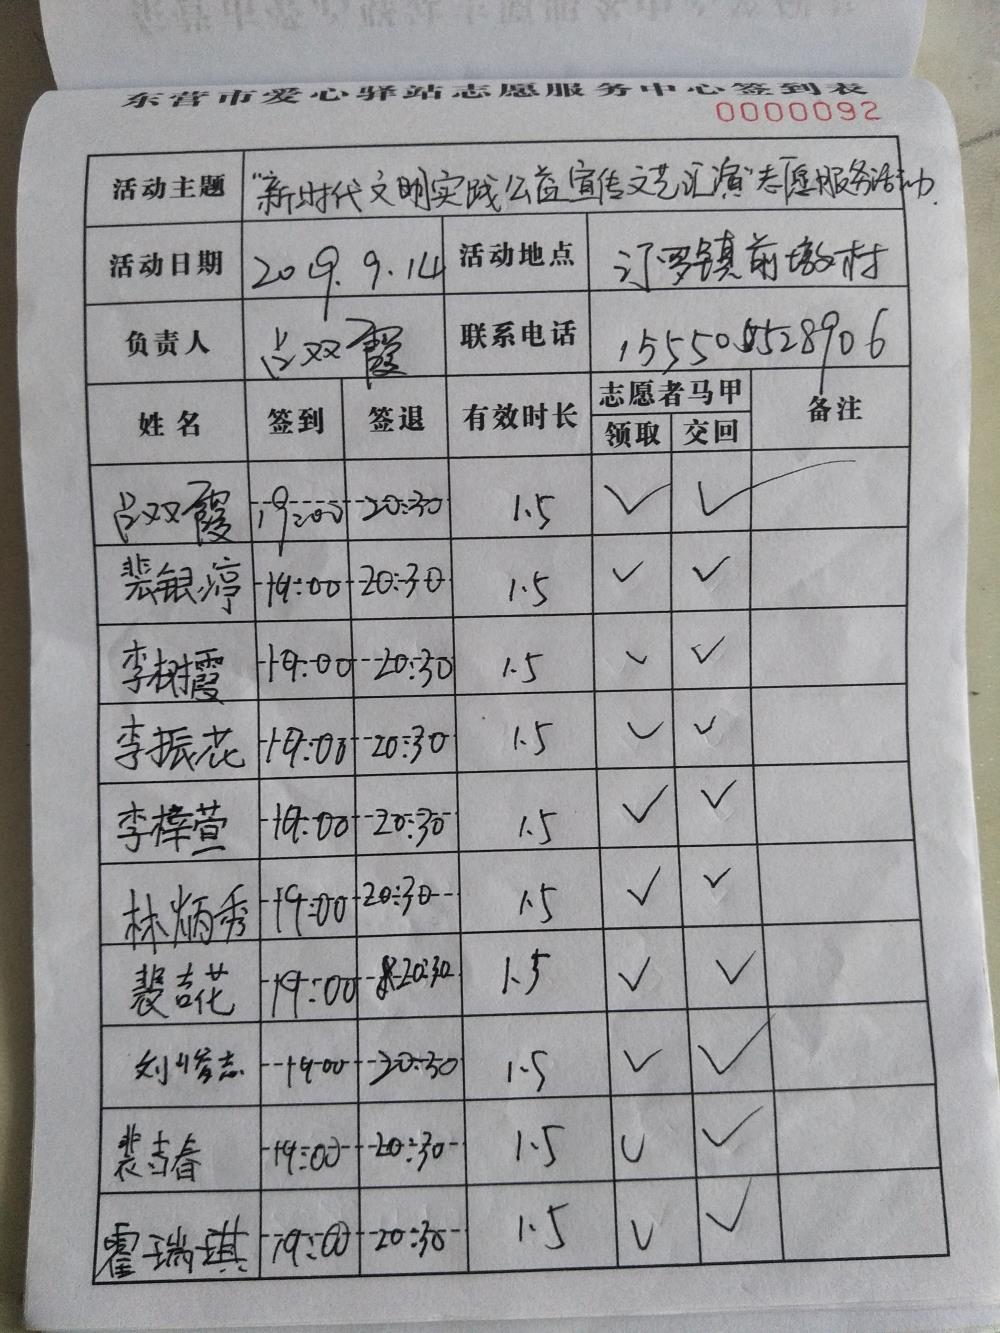 东营市爱心驿站志愿服务中心签到表
0000092
活动主题 "新时代文明实践公益宣传文艺汇演"志愿服务活动.
活动日期 2019.9.14 活动地点 汀罗镇前墩村
负责人 吕双霞 联系电话
姓名 签到 签退 有效时长 志愿者马甲 领取 交回 备注
吕双霞 19:00 20:30 1.5 ✓ ✓
裴银淳 19:00 20:30 1.5 ✓ ✓
李树霞 19:00 20:30 1.5 ✓ ✓
李振花 19:00 20:30 1.5 ✓ ✓
李梓萱 19:00 20:30 1.5 ✓ ✓
林炳秀 19:00 20:30 1.5 ✓ ✓
裴吉花 19:00 20:30 1.5 ✓ ✓
刘俊志 19:00 20:30 1.5 ✓ ✓
19:00 20:30 1.5 ✓ ✓
霍瑞琪 19:00 20:30 1.5 ✓ ✓